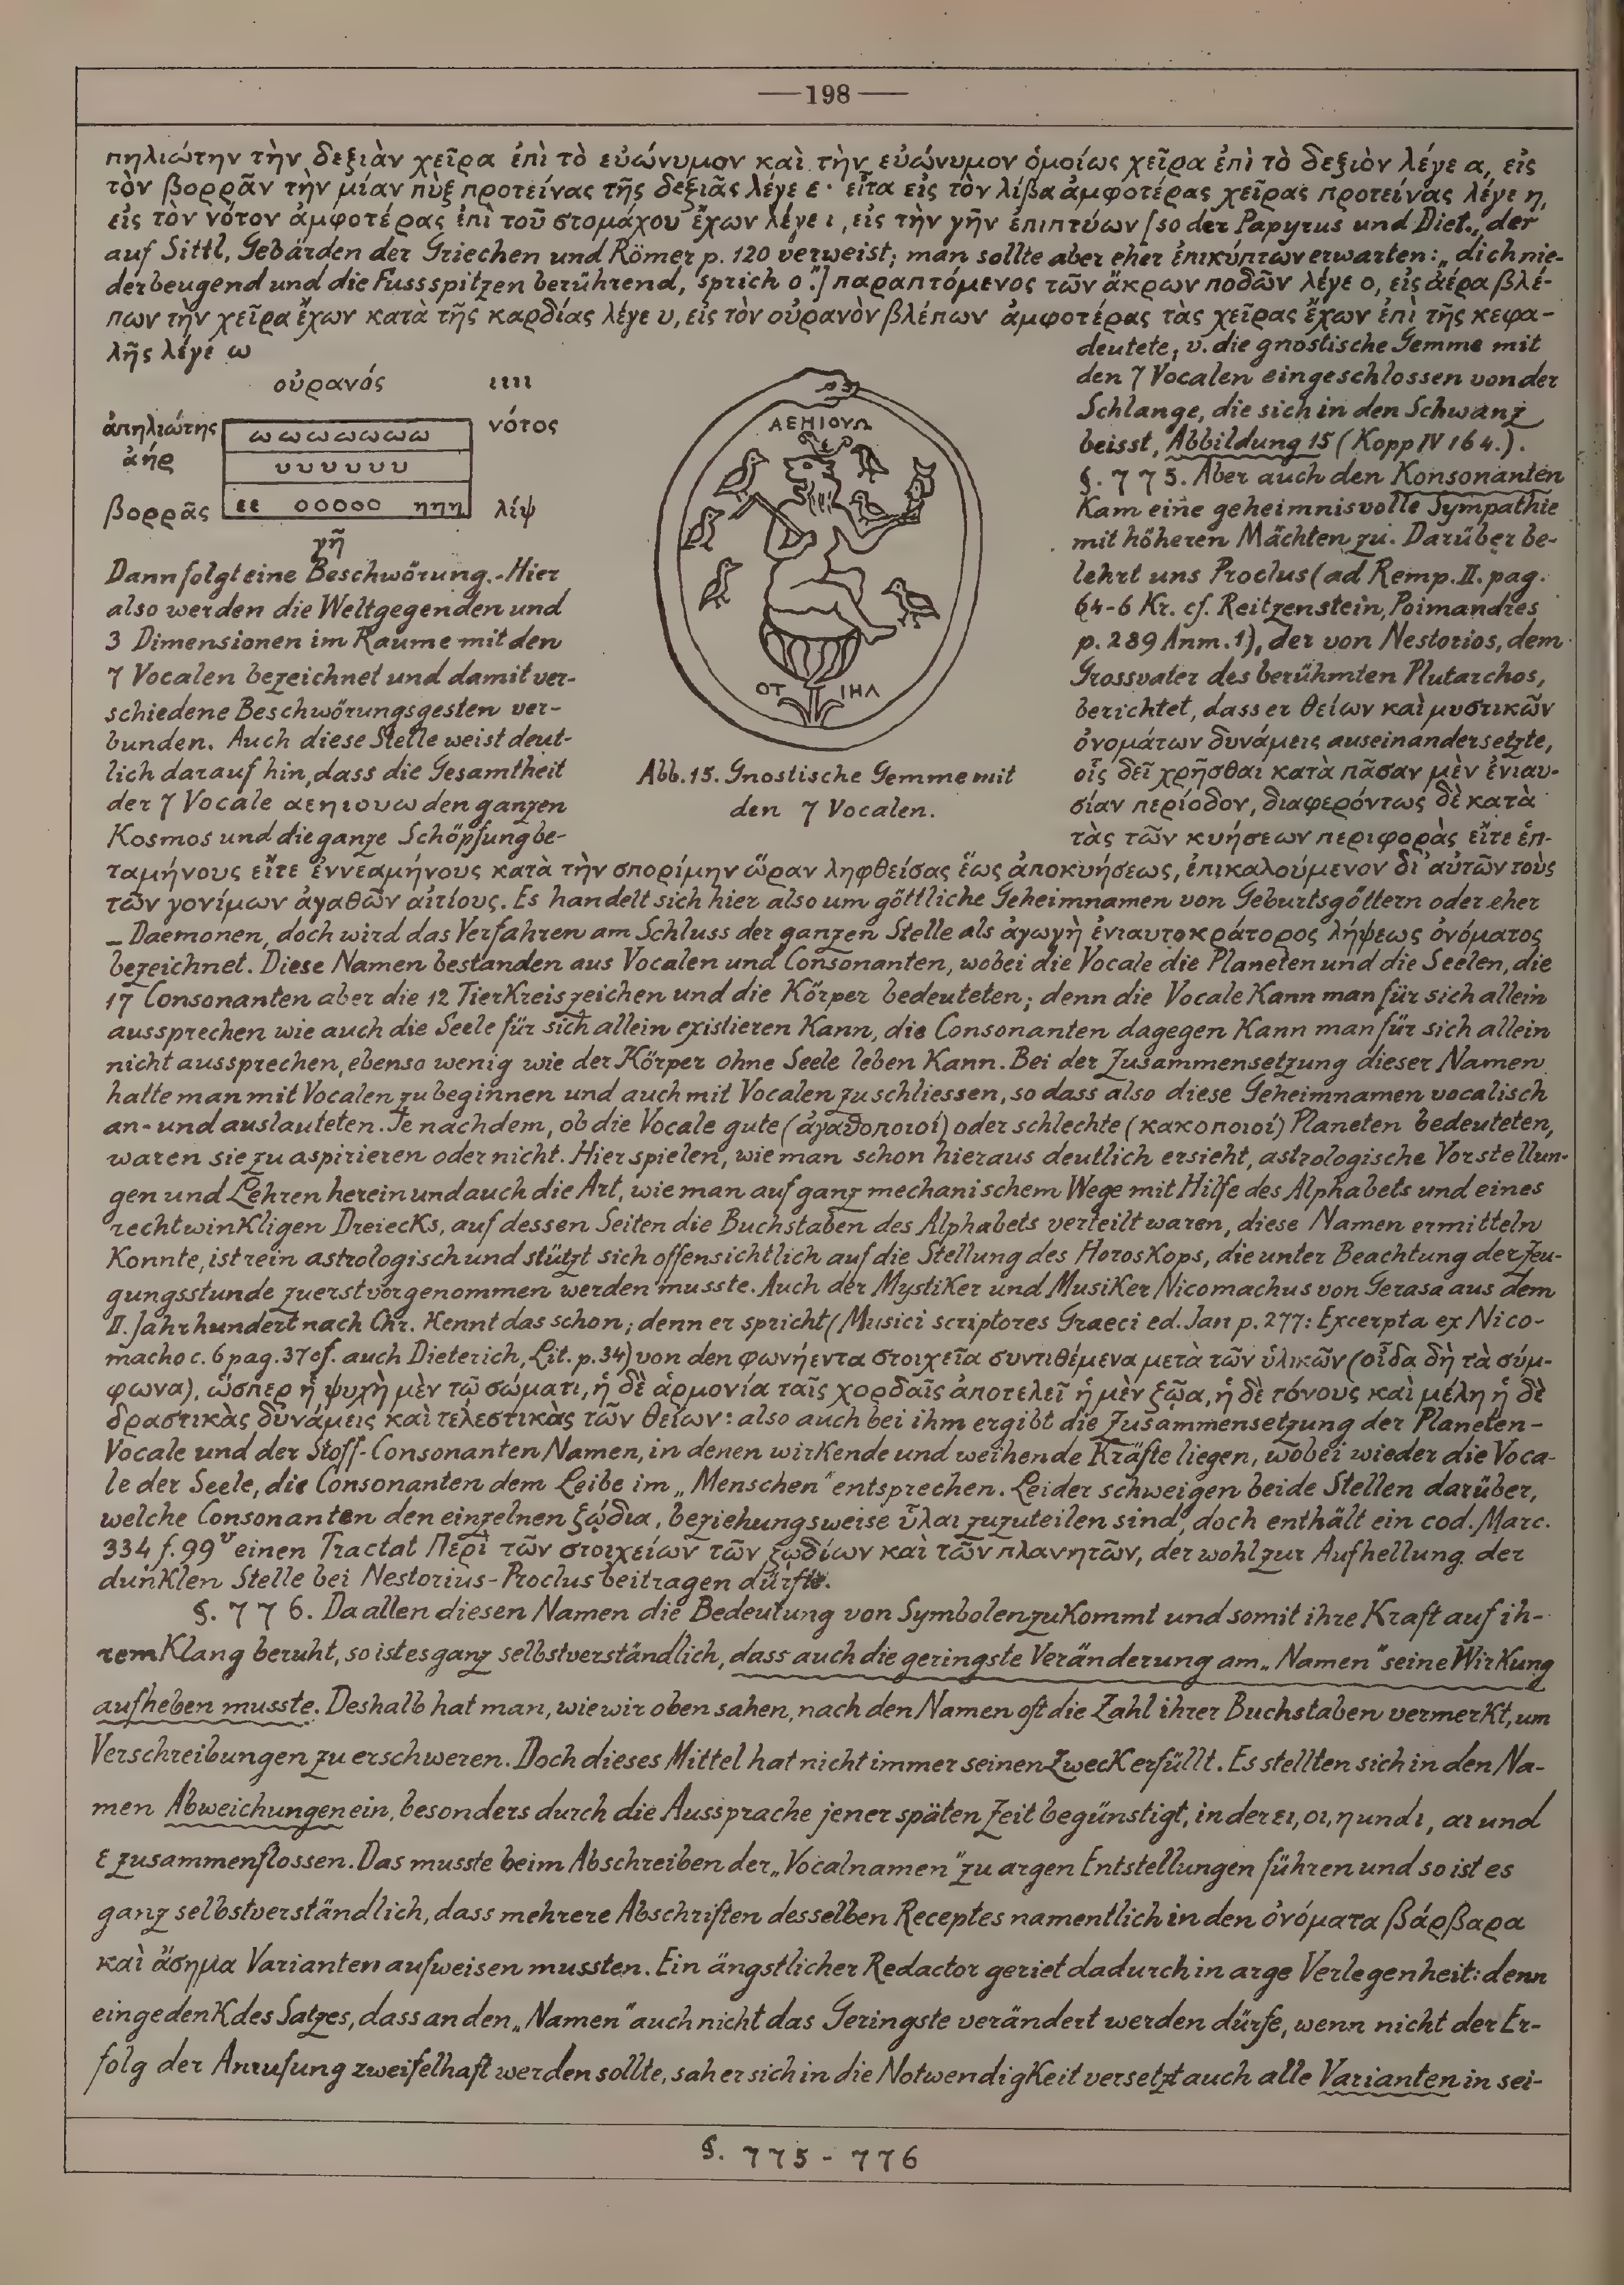 —198—
πηλιώτην τὴν δεξιὰν χεῖρα ἐπὶ τὸ εὐώνυμον καὶ τὴν εὐώνυμον ὁμοίως χεῖρα ἐπὶ τὸ δεξιὸν λέγε α, εἰς
τὸν βορρᾶν τὴν μίαν πὺξ προτείνας τῆς δεξιᾶς λέγε ε· εἶτα εἰς τὸν λίβα ἀμφοτέρας χεῖρας προτείνας λέγε η,
εἰς τὸν νότον ἀμφοτέρας ἐπὶ τοῦ στομάχου ἔχων λέγε ι, εἰς τὴν γῆν ἐπιπτύων [so der Papyrus und Diet., der
auf Sittl, Gebärden der Griechen und Römer p. 120 verweist; man sollte aber eher ἐπικύπτων erwarten: „dich nie-
derbeugend und die Fussspitzen berührend, sprich o".] παραπτόμενος τῶν ἄκρων ποδῶν λέγε ο, εἰς ἀέρα βλέ-
πων τὴν χεῖρα ἔχων κατὰ τῆς καρδίας λέγε υ, εἰς τὸν οὐρανὸν βλέπων ἀμφοτέρας τὰς χεῖρας ἔχων ἐπὶ τῆς κεφα-
λῆς λέγε ω
οὐρανός ιιιι
ἀπηλιώτης ω ω ω ω ω ω ω νότος
ἀήρ υ υ υ υ υ υ
βορρᾶς εε οοοοο ηηη λίψ
γῆ
Dann folgt eine Beschwörung.-Hier
also werden die Weltgegenden und
3 Dimensionen im Raume mit den
7 Vocalen bezeichnet und damit ver-
schiedene Beschwörungsgesten ver-
bunden. Auch diese Stelle weist deut-
lich darauf hin, dass die Gesamtheit
der 7 Vocale αεηιουω den ganzen
Kosmos und die ganze Schöpfung be-
ΑΕΗΙΟΥΩ
ΟΤ ΙΗΛ
Abb. 15. Gnostische Gemme mit
den 7 Vocalen.
deutete; v. die gnostische Gemme mit
den 7 Vocalen eingeschlossen von der
Schlange, die sich in den Schwanz
beisst, Abbildung 15 (Kopp IV 164.).
§. 775. Aber auch den Konsonanten
Kam eine geheimnisvolle Sympathie
mit höheren Mächten zu. Darüber be-
lehrt uns Proclus (ad Remp. II. pag.
64-6 Kr. cf. Reitzenstein, Poimandres
p. 289 Anm. 1), der von Nestorios, dem
Grossvater des berühmten Plutarchos,
berichtet, dass er θείων καὶ μυστικῶν
ὀνομάτων δυνάμεις auseinandersetzte,
οἷς δεῖ χρῆσθαι κατὰ πᾶσαν μὲν ἐνιαυ-
σίαν περίοδον, διαφερόντως δὲ κατὰ
τὰς τῶν κυήσεων περιφορὰς εἴτε ἑπ-
ταμήνους εἴτε ἐννεαμήνους κατὰ τὴν σπορίμην ὥραν ληφθείσας ἕως ἀποκυήσεως, ἐπικαλούμενον δι' αὐτῶν τοὺς
τῶν γονίμων ἀγαθῶν αἰτίους. Es handelt sich hier also um göttliche Geheimnamen von Geburtsgöttern oder eher
– Daemonen, doch wird das Verfahren am Schluss der ganzen Stelle als ἀγωγὴ ἐνιαυτοκράτορος λήψεως ὀνόματος
bezeichnet. Diese Namen bestanden aus Vocalen und Consonanten, wobei die Vocale die Planeten und die Seelen, die
17 Consonanten aber die 12 Tierkreiszeichen und die Körper bedeuteten; denn die Vocale Kann man für sich allein
aussprechen wie auch die Seele für sich allein existieren Kann, die Consonanten dagegen Kann man für sich allein
nicht aussprechen, ebenso wenig wie der Körper ohne Seele leben Kann. Bei der Zusammensetzung dieser Namen
hatte man mit Vocalen zu beginnen und auch mit Vocalen zu schliessen, so dass also diese Geheimnamen vocalisch
an- und auslauteten. Je nachdem, ob die Vocale gute (ἀγαθοποιοί) oder schlechte (κακοποιοί) Planeten bedeuteten,
waren sie zu aspirieren oder nicht. Hier spielen, wie man schon hieraus deutlich ersieht, astrologische Vorstellun-
gen und Lehren herein und auch die Art, wie man auf ganz mechanischem Wege mit Hilfe des Alphabets und eines
rechtwinkligen Dreiecks, auf dessen Seiten die Buchstaben des Alphabets verteilt waren, diese Namen ermitteln
Konnte, ist rein astrologisch und stützt sich offensichtlich auf die Stellung des Horoskops, die unter Beachtung der Zeu-
gungsstunde zuerst vorgenommen werden musste. Auch der Mystiker und Musiker Nicomachus von Gerasa aus dem
II. Jahrhundert nach Chr. Kennt das schon; denn er spricht (Musici scriptores Graeci ed. Jan p. 277: Excerpta ex Nico-
macho c. 6 pag. 37 cf. auch Dieterich, Lit. p. 34) von den φωνήεντα στοιχεῖα συντιθέμενα μετὰ τῶν ὑλικῶν (οἷδα δὴ τὰ σύμ-
φωνα), ὥσπερ ἡ ψυχὴ μὲν τῷ σώματι, ἡ δὲ ἁρμονία ταῖς χορδαῖς ἀποτελεῖ ἡ μὲν ζῷα, ἡ δὲ τόνους καὶ μέλη ἡ δὲ
δραστικὰς δυνάμεις καὶ τελεστικὰς τῶν θείων: also auch bei ihm ergibt die Zusammensetzung der Planeten-
Vocale und der Stoff-Consonanten Namen, in denen wirkende und weihende Kräfte liegen, wobei wieder die Voca-
le der Seele, die Consonanten dem Leibe im „Menschen" entsprechen. Leider schweigen beide Stellen darüber,
welche Consonanten den einzelnen ζῴδια, beziehungsweise ὗλαι zuzuteilen sind, doch enthält ein cod. Marc.
334 f. 99v einen Tractat Περὶ τῶν στοιχείων τῶν ζῳδίων καὶ τῶν πλανητῶν, der wohl zur Aufhellung der
dunklen Stelle bei Nestorius-Proclus beitragen dürfte.
§. 776. Da allen diesen Namen die Bedeutung von Symbolen zukommt und somit ihre Kraft auf ih-
rem Klang beruht, so ist es ganz selbstverständlich, dass auch die geringste Veränderung am „Namen" seine Wirkung
aufheben musste. Deshalb hat man, wie wir oben sahen, nach den Namen oft die Zahl ihrer Buchstaben vermerkt, um
Verschreibungen zu erschweren. Doch dieses Mittel hat nicht immer seinen Zweck erfüllt. Es stellten sich in den Na-
men Abweichungen ein, besonders durch die Aussprache jener späten Zeit begünstigt, in der ει, οι, η und ι, αι und
ε zusammenflossen. Das musste beim Abschreiben der „Vocalnamen" zu argen Entstellungen führen und so ist es
ganz selbstverständlich, dass mehrere Abschriften desselben Receptes namentlich in den ὀνόματα βάρβαρα
καὶ ἄσημα Varianten aufweisen mussten. Ein ängstlicher Redactor geriet dadurch in arge Verlegenheit: denn
eingedenk des Satzes, dass an den „Namen" auch nicht das Geringste verändert werden dürfe, wenn nicht der Er-
folg der Anrufung zweifelhaft werden sollte, sah er sich in die Notwendigkeit versetzt auch alle Varianten in sei-
§. 775 - 776